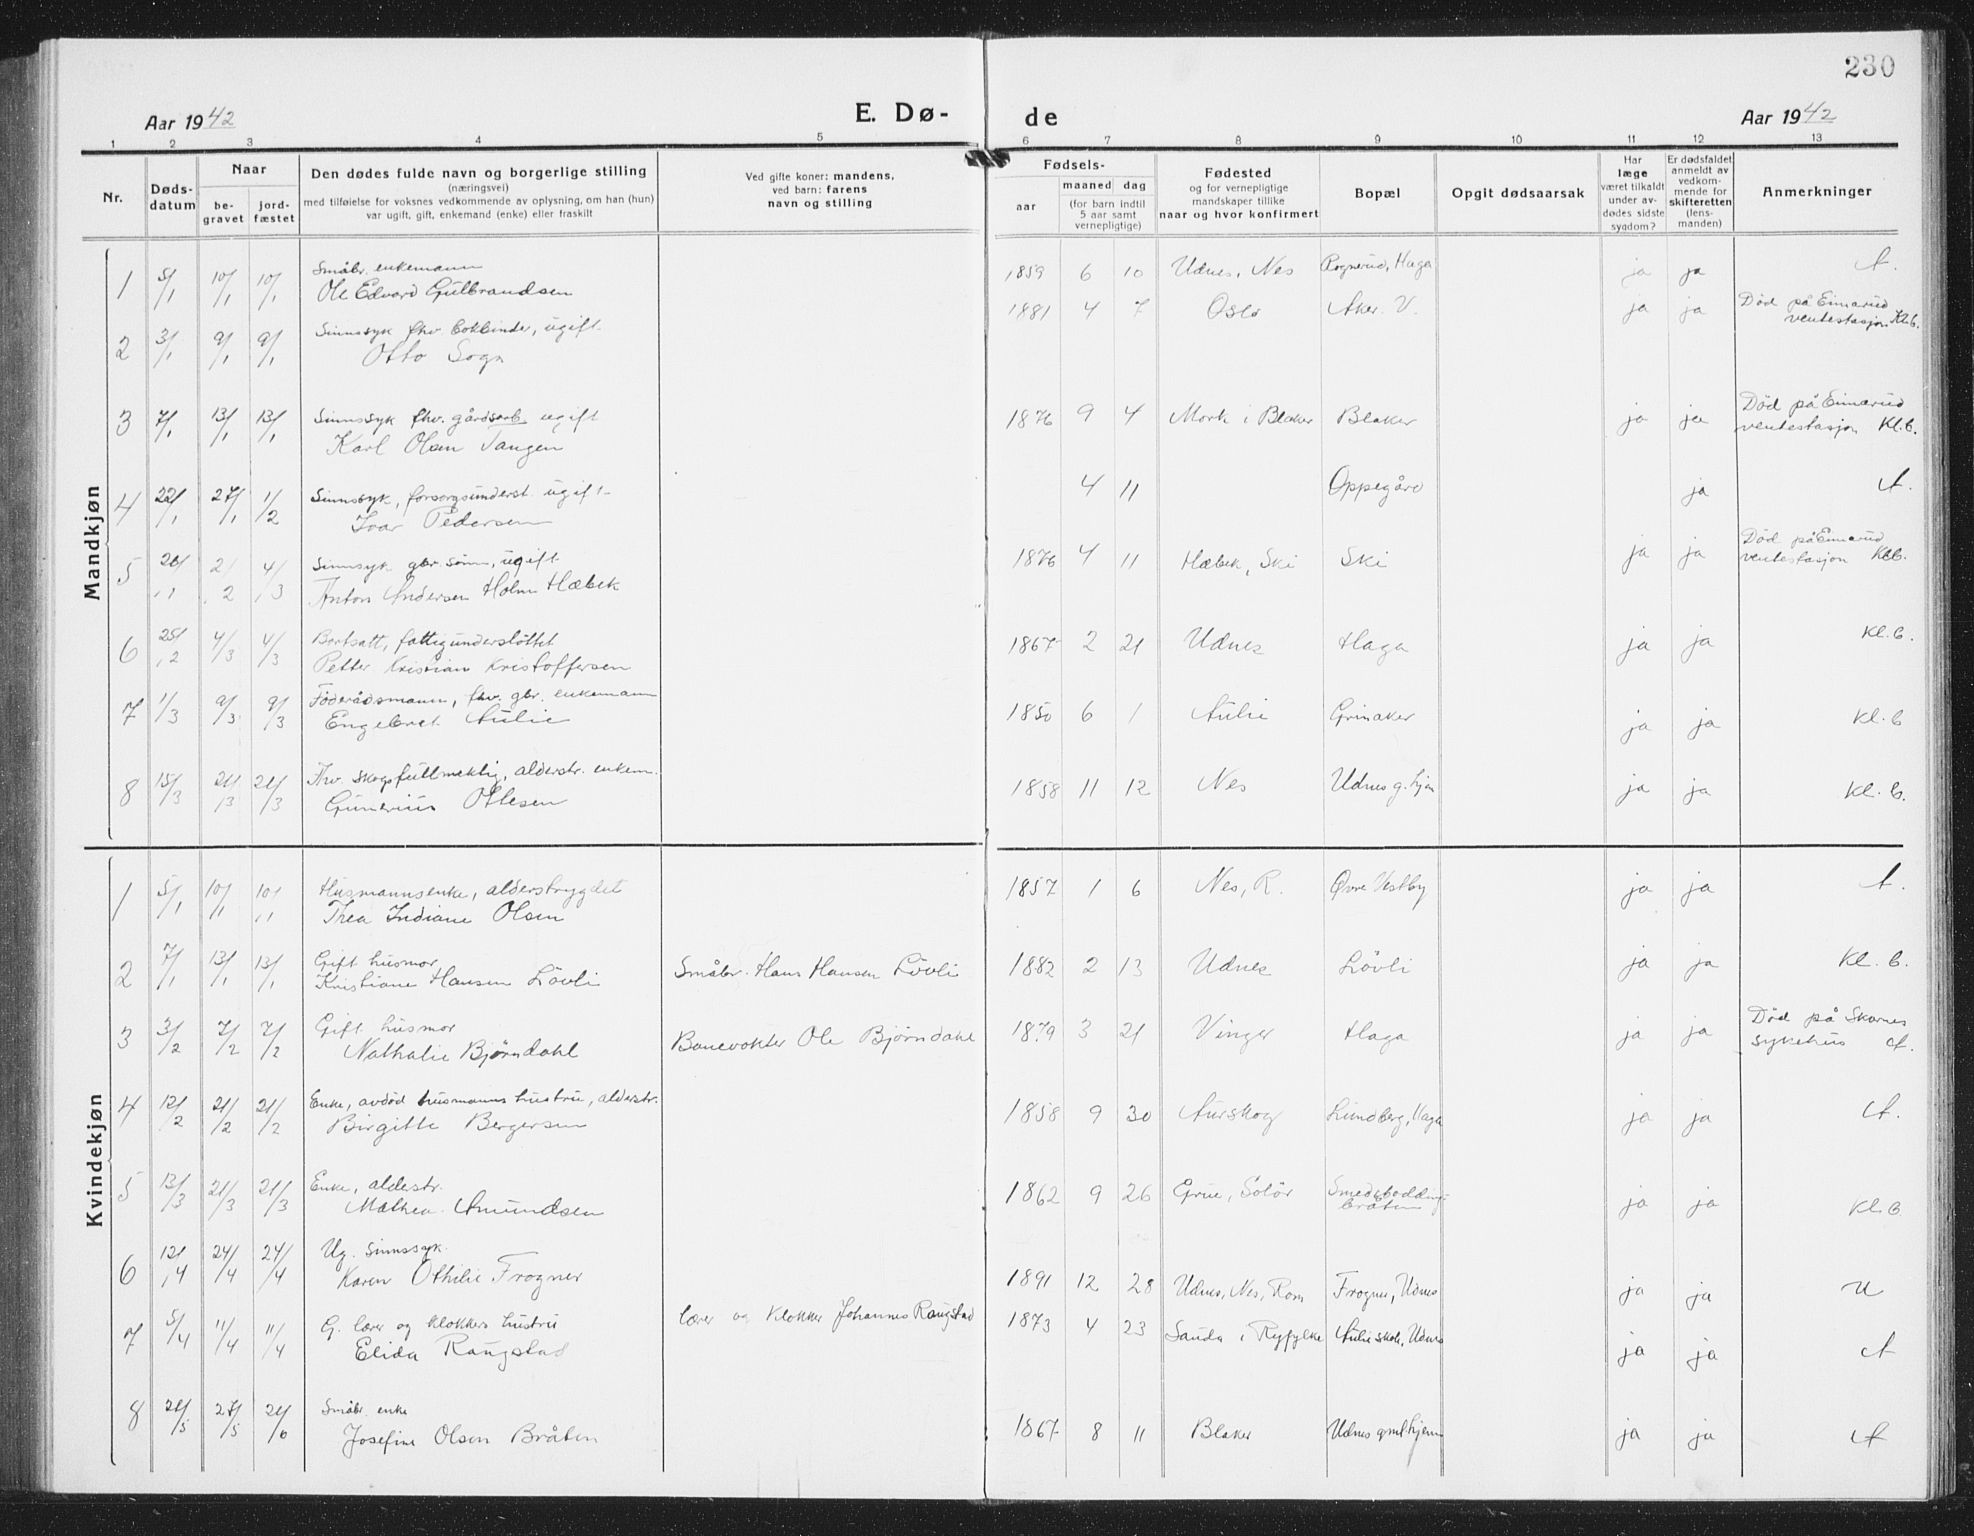 230
Aar 1942 E. Dø- de Aar 1942
1 2 3 4 5 6 7 8 9 10 11 12 13
Nr.
Døds-
datum
Naar
be-
gravet
jord-
fæstet
Den dødes fulde navn og borgerlige stilling
(næringsvei)
med tilføielse for voksnes vedkommende av oplysning, om han (hun)
var ugift, gift, enkemand (enke) eller fraskilt
Ved gifte koner: mandens,
ved barn: farens
navn og stilling
Fødsels-
aar
maaned dag
(for barn indtil
5 aar samt
vernepligtige)
Fødested
og for vernepligtige
mandskaper tillike
naar og hvor konfirmert
Bopæl
Opgit dødsaarsak
Har
læge
været tilkaldt
under av-
dødes sidste
sygdom?
Er dødsfaldet
anmeldt av
vedkom-
mende for
skifteretten
(lens-
manden)
Anmerkninger
Mandkjøn
Småbr. enkemann
1 5/1 10/1 10/1 Ole Edvard Gulbrandsen 1859 6 10 Udnes, Nes Rognerud, Haga ja ja A.
Sinnssyk fhv. bokbinder, ugift.
2 3/1 9/1 9/1 Otto Sogn 1881 4 7 Oslo Aker. V. ja ja Død på Eimarud
ventestasjon Kl.b.
Sinnssyk fhv. gårdsarb ugift
3 7/1 13/1 13/1 Karl Olsen Tangen 1876 9 4 Mork i Blaker Blaker ja ja Død på Eimarud
ventestasjon Kl.b.
Sinnssyk, forsorgsunderst. ugift-
4 22/1 27/1 1/2 Ivar Pedersen 4 11 Oppegård ja A.
Sinnsyk gbr. sønn, ugift
5 2/2 4/3 Anton Andersen Holm Hæbek 1876 4 11 Hæbek, Ski Ski ja ja Død på Eimarud
ventestasjon Kl.b.
Bortsatt, fattigunderstøttet
6 25/2 4/3 4/3 Petter Kristian Kristoffersen 1867 2 21 Udnes Haga ja ja Kl.b.
Föderådsmann, fhv. gbr. enkemann
7 1/3 9/3 9/3 Engebret Aulie 1850 6 1 Aulie Grinaker ja ja Kl.b
Fhv. skogsfullmektig, alderstr. enkem.
8 15/3 21/3 21/3 Gunerius Ottesen 1858 11 12 Nes Udnes g.hjem ja ja Kl.b.
Kvindekjøn
Husmannsenke, alderstrygdet
1 5/1 10/1 10/1 Thea Indiane Olsen 1857 1 6 Nes, R. Øvre Vestby ja ja A.
Gift husmor
2 7/1 13/1 13/1 Kristiane Hansen Lövli Småbr. Hans Hansen Lövli 1882 2 13 Udnes Lövli ja ja Kl.b.
Gift husmor
3 3/2 7/2 7/2 Nathalie Bjørndahl Banevokter Ole Bjørndahl 1879 3 21 Vinger Haga ja ja Død på Skarnes
sykehus A.
Enke, avdöd husmanns hustru, alderstr.
4 12/2 21/2 21/2 Birgitte Bergersen 1858 9 30 Aurskog Lundberg, Haga ja ja A.
Enke, alderstr.
5 13/3 21/3 21/3 Mathea Amundsen 1862 9 26 Grue, Solör Smedsbodding-
bråten ja ja Kl.b
Ug. sinnssyk.
6 12/4 24/4 24/4 Karen Othilie Frogner 1891 12 28 Udnes, Nes, Rom Frogner, Udnes ja ja U
G. lærer og klokkers hustru
7 5/4 11/4 11/4 Elida Raugstad lærer og klokker Johannes Raugstad 1873 4 23 Sauda i Ryfylke Aulie skole, Udnes ja ja A
Småbr. enke
8 21/5 27/5 21/6 Josefine Olsen Bråten 1867 8 11 Blaker Udnes gmlhjem ja ja A